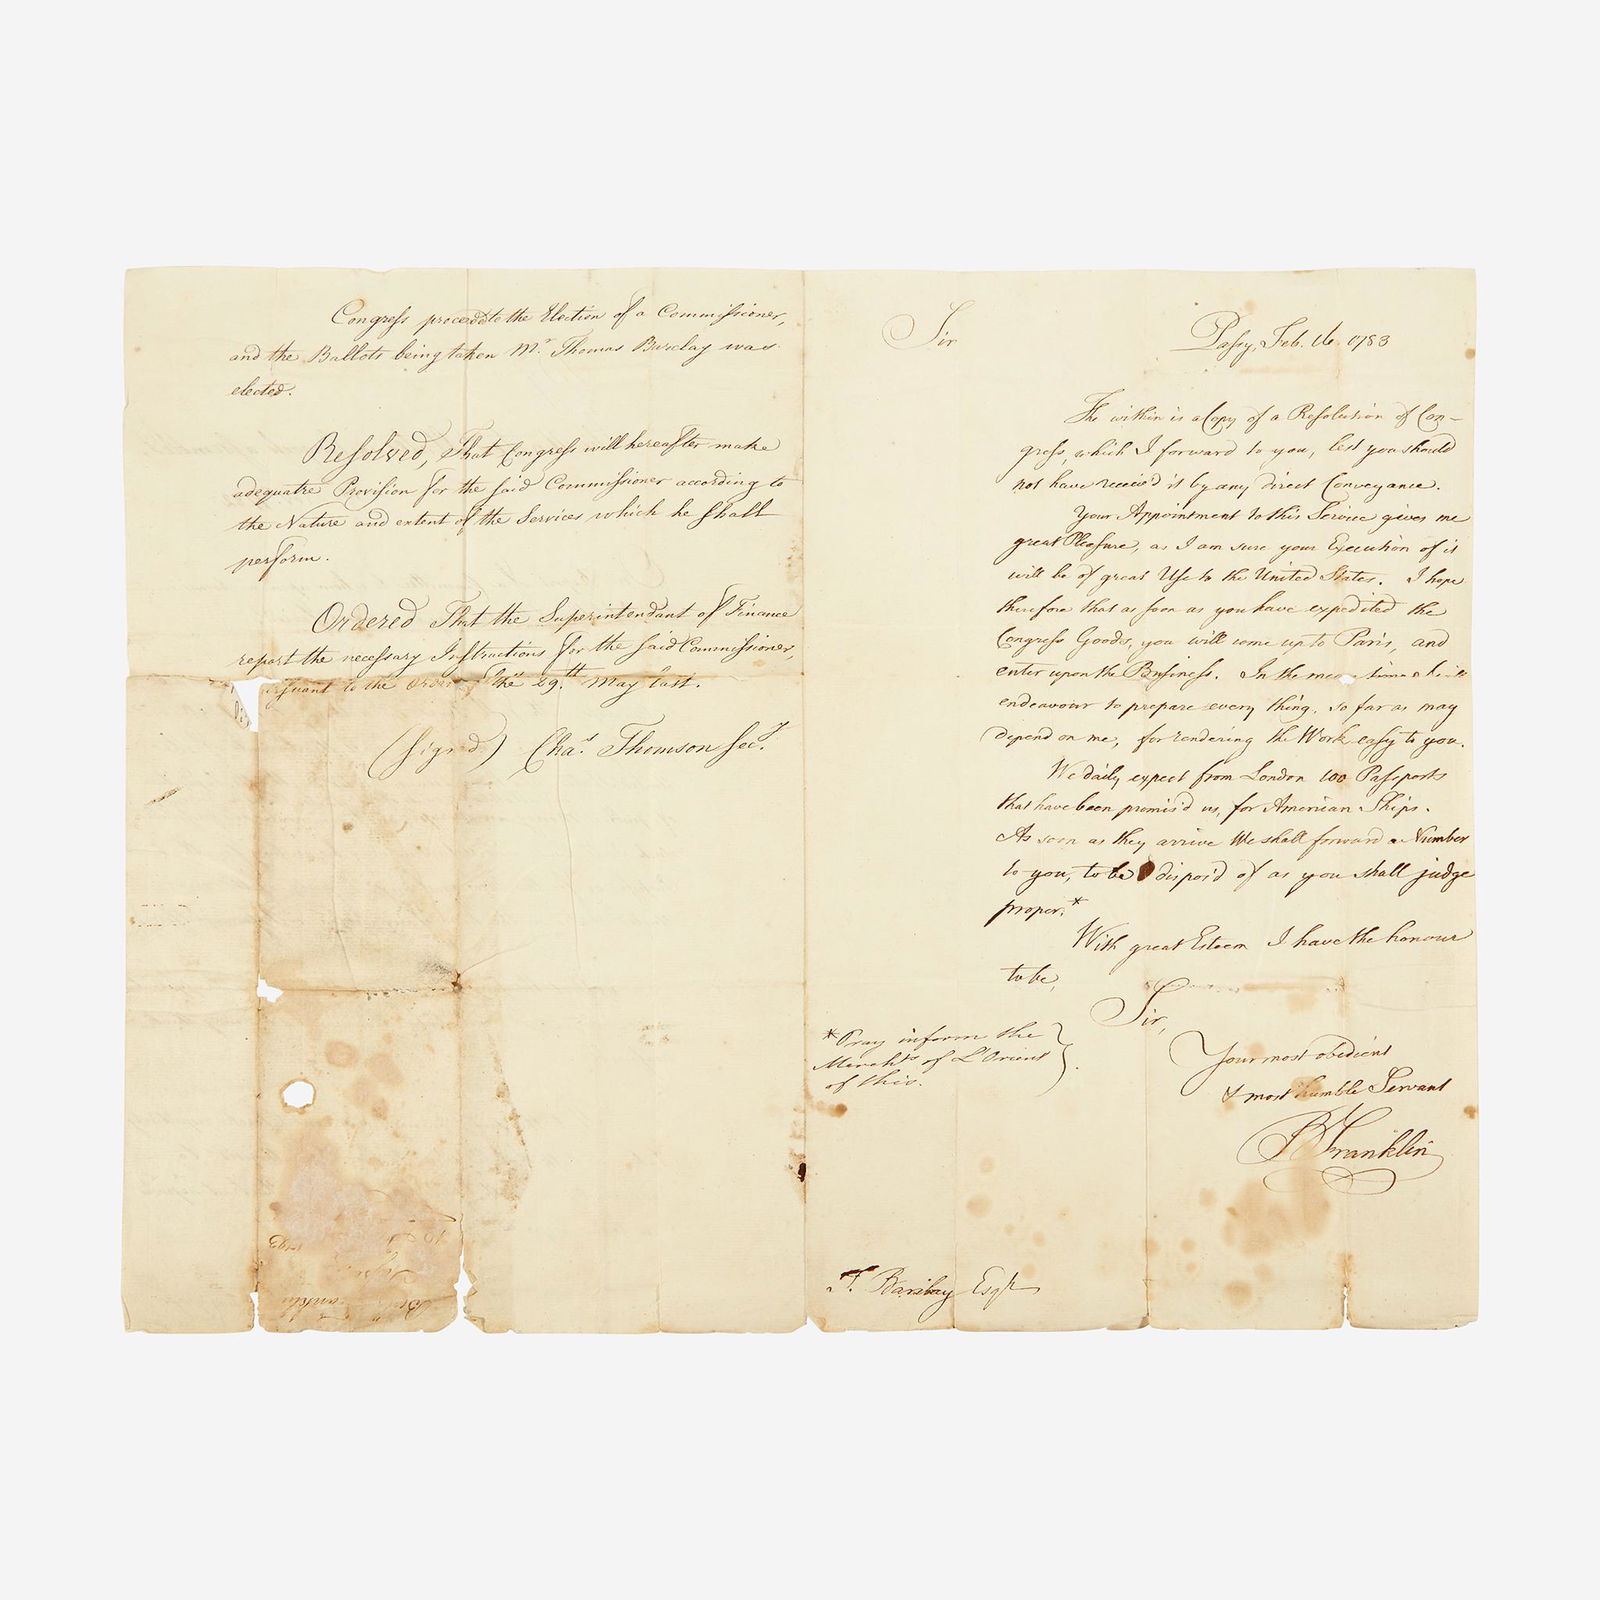 Congress proceed to the Election of a Commissioner,
and the Ballots being taken Mr. Thomas Barclay was
elected.
Resolved, That Congress will hereafter make
adequate Provision for the said Commissioner according to
the Nature and extent of the Services which he shall
perform.
Ordered That the Superintendant of Finance
report the necessary Instructions for the said Commissioner,
to the Order of the 29th. May last.
(Signed) Chas. Thomson Secy.
Sir
Passy, Feb. 16. 1783
The within is a Copy of a Resolution of Con-
gress, which I forward to you, lest you should
not have receiv'd it by any direct Conveyance.
Your Appointment to this Service gives me
great Pleasure, as I am sure your Execution of it
will be of great Use to the United States. I hope
therefore that as soon as you have expedited the
Congress Goods, you will come up to Paris, and
enter upon the Business. In the mean time I will
endeavour to prepare every thing, so far as may
depend on me, for rendering the Work easy to you.
We daily expect from London 100 Passports
that have been promis'd us, for American Ships.
As soon as they arrive We shall forward a Number
to you, to be dispos'd of as you shall judge
proper.*
With great Esteem I have the honour
to be,
Sir,
Your most obedient
& most humble Servant
B Franklin
*Pray inform the
Merchts of L'Orient
of this.
T. Barclay Esqr